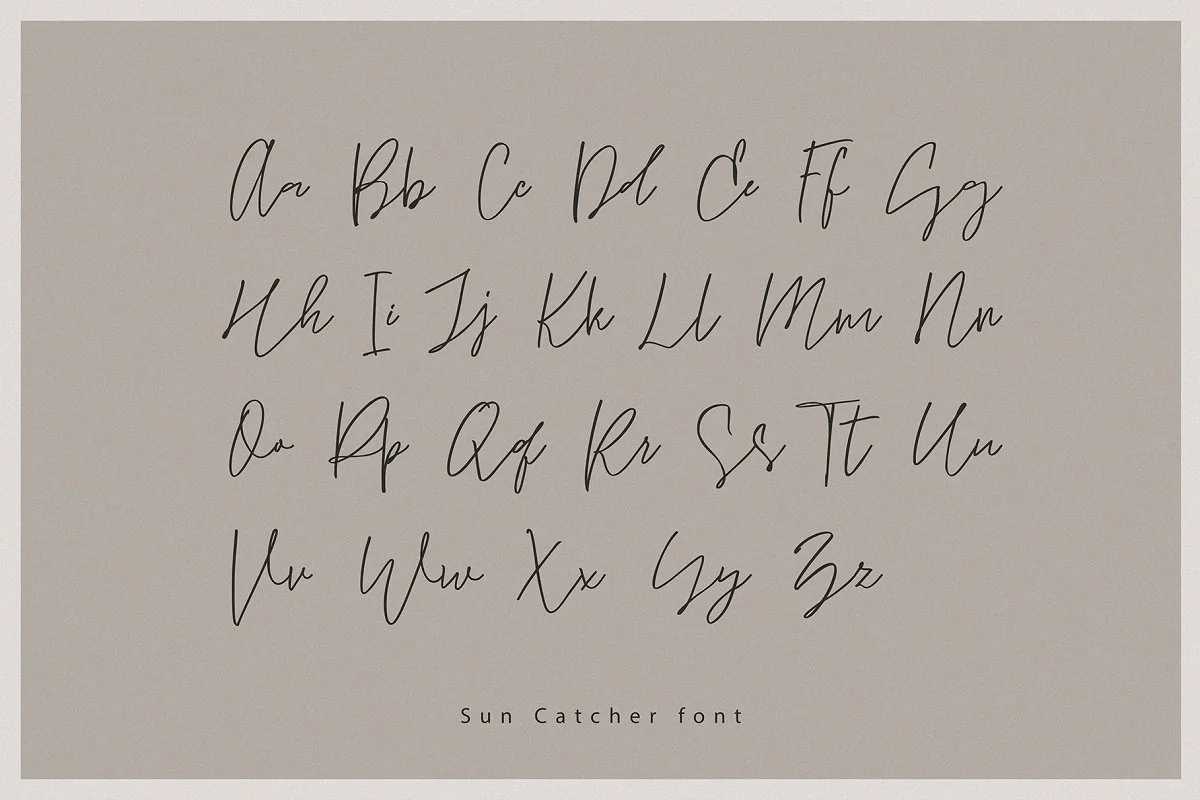 Aa Bb Cc Dd Ee Ff Gg
Hh Ii Jj Kk Ll Mm Nn
Oo Pp Qq Rr Ss Tt Uu
Vv Ww Xx Yy Zz
Sun Catcher font